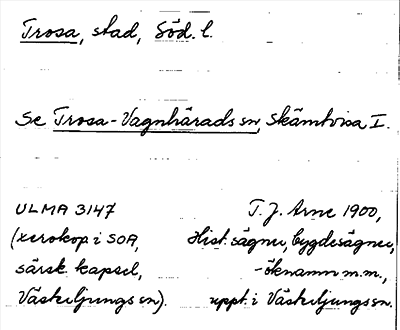 Trosa, stad, Söd. l.
Se Trosa-Vagnhärads sn, Skämtvisa I.
ULMA 3147 T. J. Arne 1900,
(xerokop. i SOA, Hist. sägner, bygdesägner,
särsk. kapsel, -öknamn m.m.,
Västerljungs sn). uppt. i Västerljungs sn.